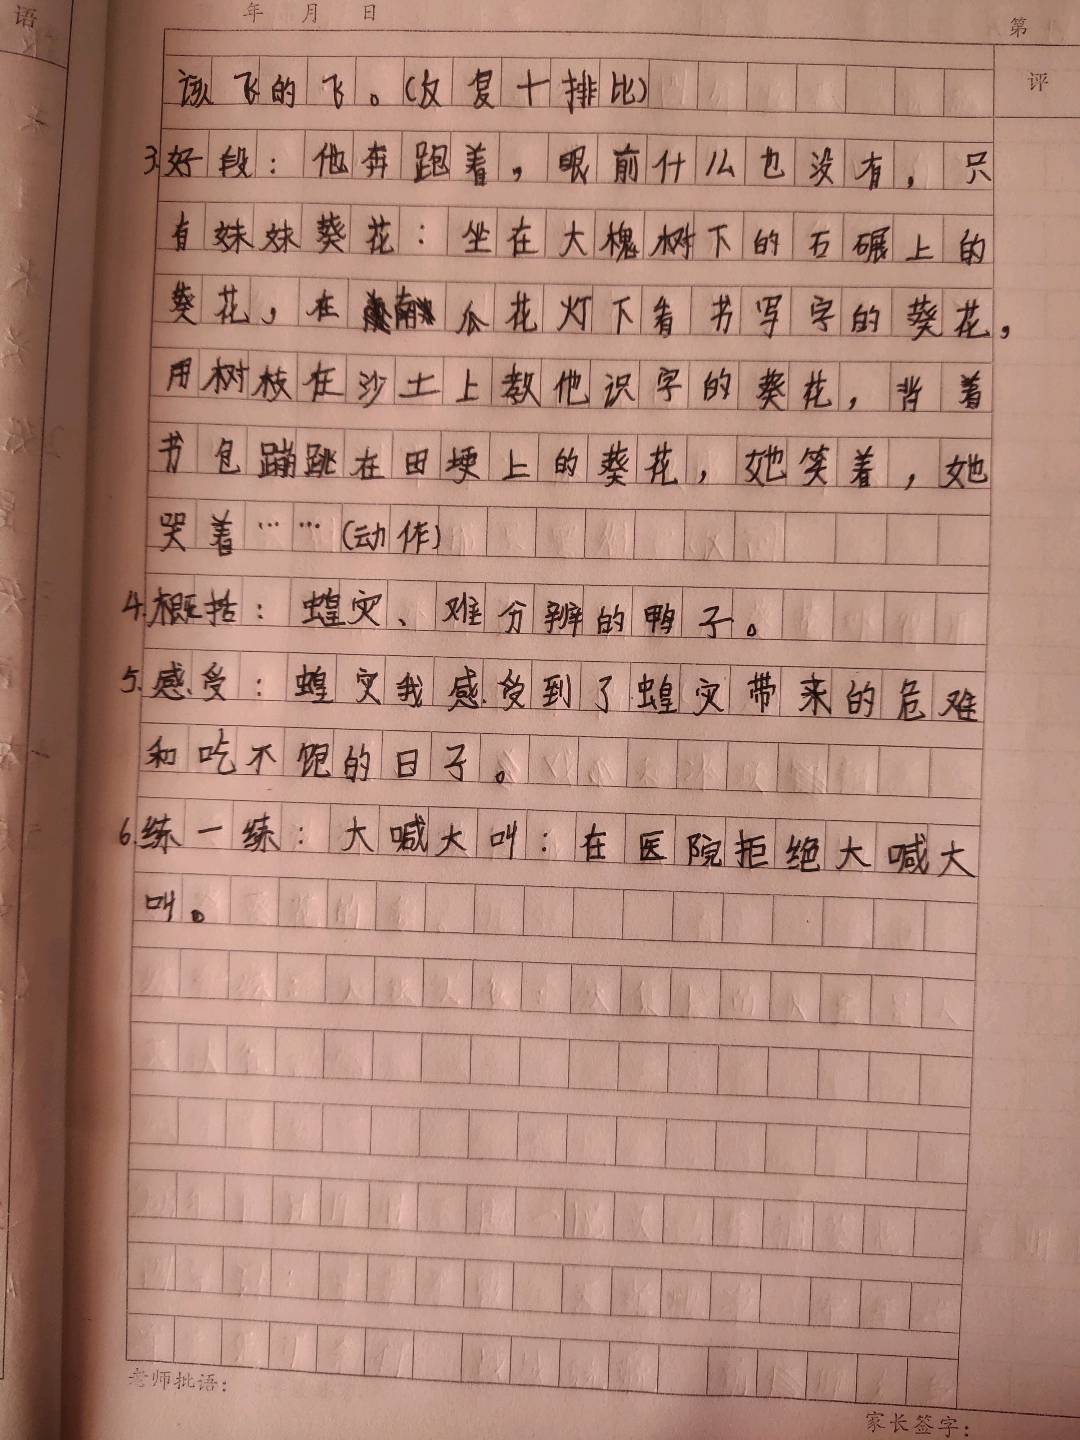 语
年 月 日
第
评
该飞的飞。(反复十排比)
3.好段：他奔跑着，眼前什么也没有，只
有妹妹葵花：坐在大槐树下的石碾上的
葵花，在南瓜花灯下看书写字的葵花，
用树枝在沙土上教他识字的葵花，背着
书包蹦跳在田埂上的葵花，她笑着，她
哭着……(动作)
4.概括：蝗灾、难分辨的鸭子。
5.感受：蝗灾我感受到了蝗灾带来的危难
和吃不饱的日子。
6.练一练：大喊大叫：在医院拒绝大喊大
叫。
老师批语：
家长签字：